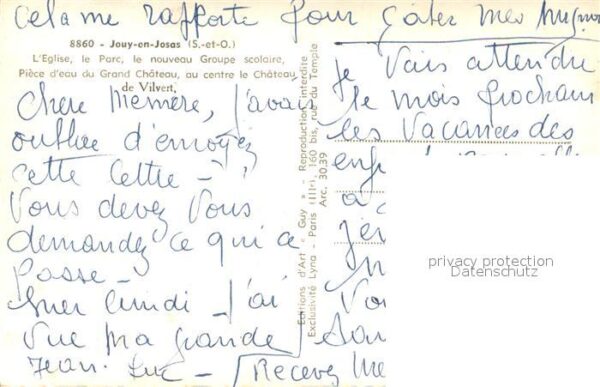 Cela me rapporte pour gâter mes mignons
8860 - Jouy-en-Josas (S.-et-O.)
L'Eglise, le Parc, le nouveau Groupe scolaire,
Pièce d'eau du Grand Château, au centre le Château
de Vilvert.
Chère Mémère, j'avais
oublié d'envoyer
cette lettre -
Vous devez vous
demandez ce qui ce
passe -
Hier lundi - j'ai
vue ma grande
Jean-Luc - Recevez Me
Editions d'Art « Guy » - Reproduction interdite
Exclusivité Lyna - Paris (III), 160 bis, rue du Temple
Arc. 30.39
Je vais attendre
le mois prochain
les vacances des
enf
a
Vo
privacy protection
Datenschutz